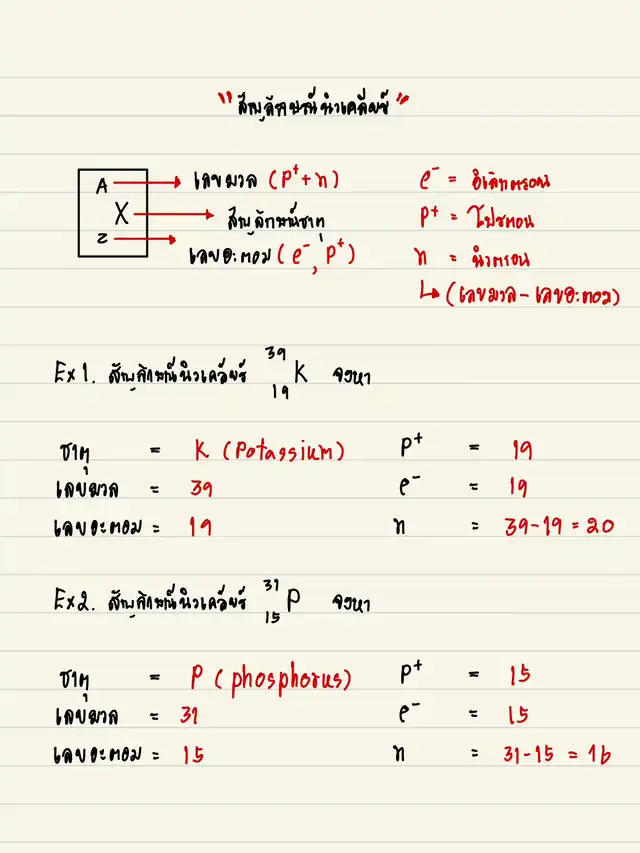 "สัญลักษณ์นิวเคลียร์"
A → เลขมวล (p⁺+n)
X → สัญลักษณ์ธาตุ
z → เลขอะตอม (e⁻, p⁺)
e⁻ = อิเล็กตรอน
p⁺ = โปรตอน
n = นิวตรอน
↳ (เลขมวล - เลขอะตอม)
Ex1. สัญลักษณ์นิวเคลียร์ ³⁹₁₉K จงหา
ธาตุ = K (Potassium)
เลขมวล = 39
เลขอะตอม = 19
p⁺ = 19
e⁻ = 19
n = 39-19 = 20
Ex2. สัญลักษณ์นิวเคลียร์ ³¹₁₅P จงหา
ธาตุ = P (phosphorus)
เลขมวล = 31
เลขอะตอม = 15
p⁺ = 15
e⁻ = 15
n = 31-15 = 16